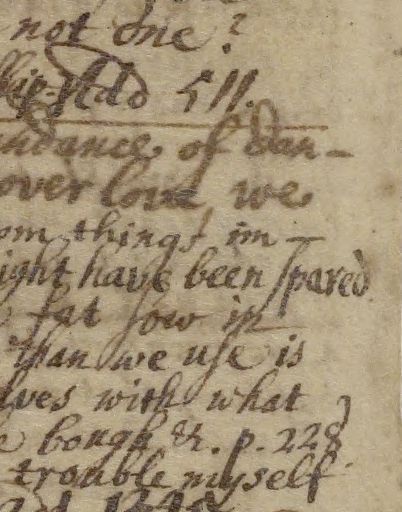 not one?
Add 511.
undance of dan-
over love we
om things im-
ight have been spared
fat sow in
than we use is
lves with what
e bough &. p. 228
trouble myself